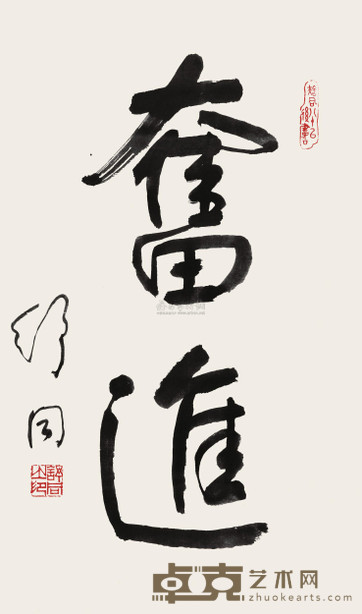 奮
進
舒同
舒同之印
卓克艺术网
zhuokearts.com